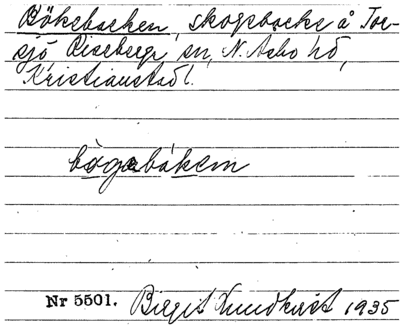 Bökebacken, skogsbacke å Tor-
sjö, Riseberga sn, N. Åsbo hd,
Kristianstad l.
bögabákem
Nr 5501. Birgit Lundkvist 1935